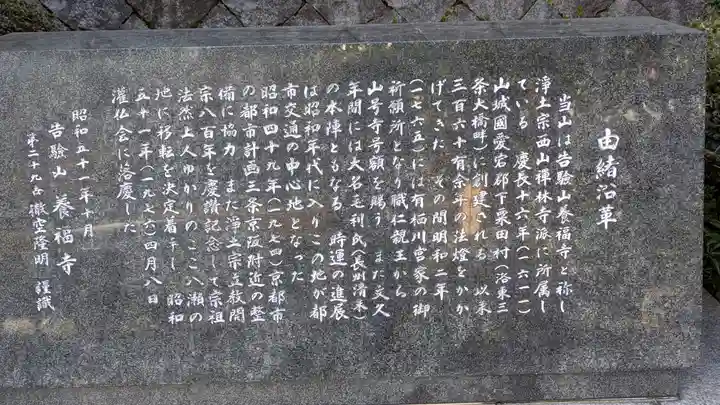 由緒沿革
当山は告驗山養福寺と称し
浄土宗西山禅林寺派に所属し
ている 慶長十六年(一六一一)
山城國愛宕郡下粟田村(洛東三
条大橋畔)に創建される 以来
三百六十有余年の法燈をかか
げてきた その間明和二年
(一七六五)には有栖川宮家の御
祈願所となり職仁親王から
山号寺号額を賜う また文久
年間には大名毛利氏(長州清末)
の本陣ともなる 時運の進展
は昭和年代に入りこの地が都
市交通の中心地となった
昭和四十九年(一九七四)京都市
の都市計画三条京阪附近の整
備に協力 また浄土宗立教開
宗八百年を慶讃記念して宗祖
法然上人ゆかりのここ八瀬の
地に移転を決定着手し 昭和
五十一年(一九七六)四月八日
灌仏会に落慶した
昭和五十一年十月
告驗山 養福寺
第二十九世 徹空隆明 謹識